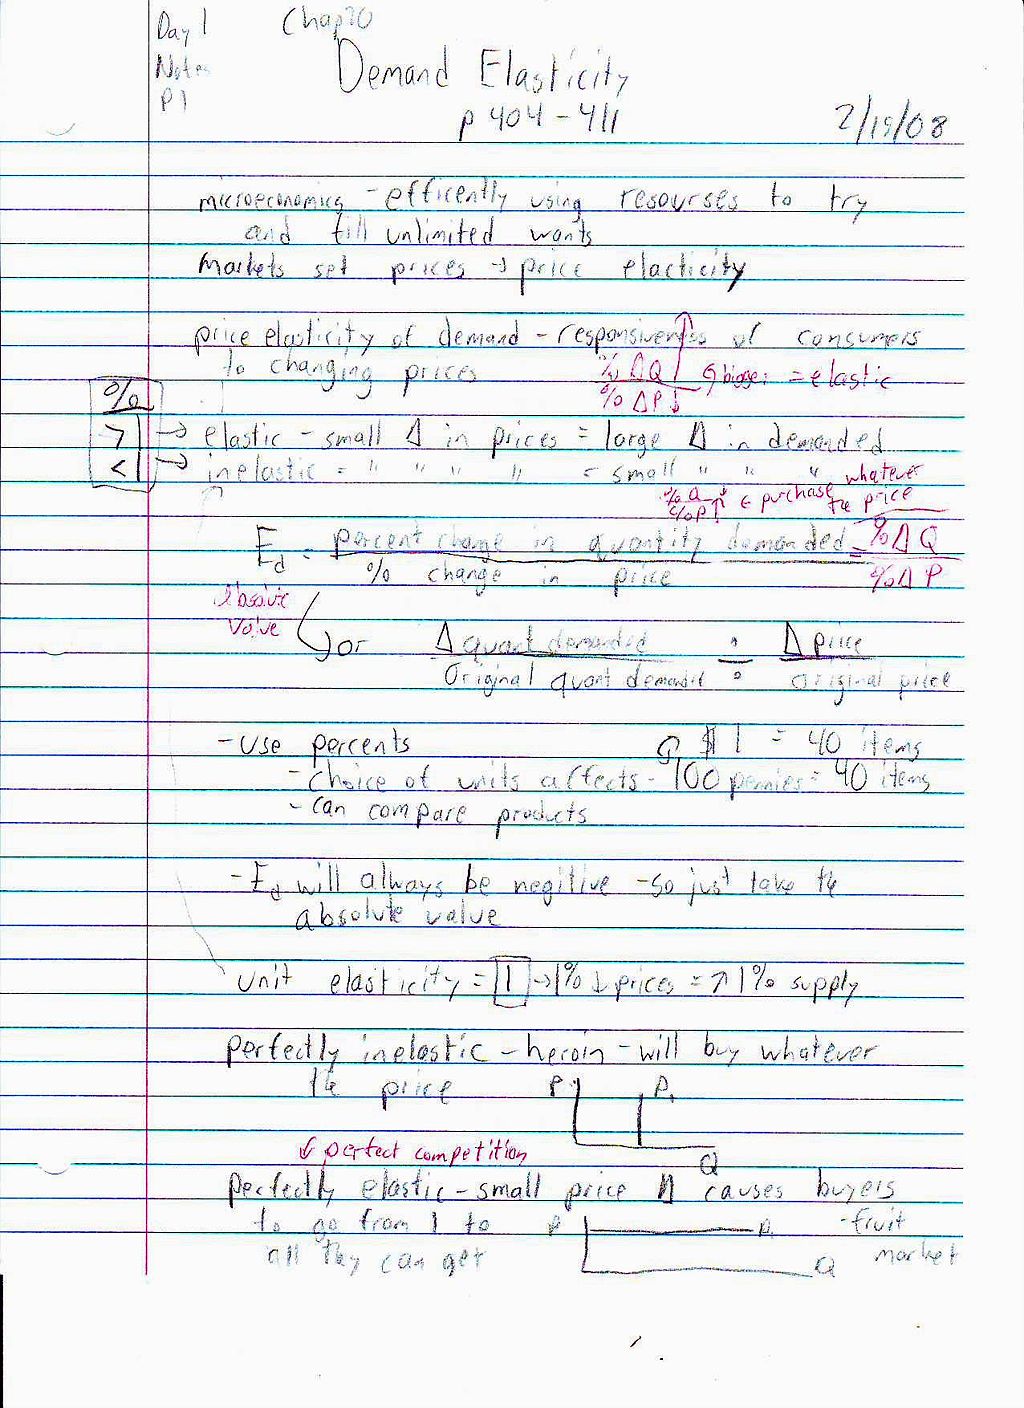 Day 1
Chap 20
Notes
P 1
Demand Elasticity
p 404-411
2/19/08
microeconomics - efficently using resourses to try
and fill unlimited wants
Markets set prices → price elacticity
price elasticity of demand - responsiveness of consumers
to changing prices
%ΔQ↑ bigger = elastic
%ΔP↓
%
>1 → elastic - small Δ in prices = large Δ in demanded
<1 → inelastic = " " " " = small " " "
%Q
%P↑ ← purchase whatever the price
Ed = percent change in quantity demanded = %ΔQ
% change in price %ΔP
absolute
value
or Δ quant demanded ÷ Δ price
Original quant demanded original price
- use percents $1 = 40 items
- choice of units affects - 100 pennies = 40 items
- can compare products
- Ed will always be negitive - so just take the
absolute value
unit elasticity = 1 → 1% ↓ prices = ↑ 1% supply
perfectly inelastic - heroin - will buy whatever
the price
P D1
Q
↓ perfect competition
perfectly elastic - small price Δ causes buyers
to go from 1 to
all they can get
P D1
Q
- fruit
market